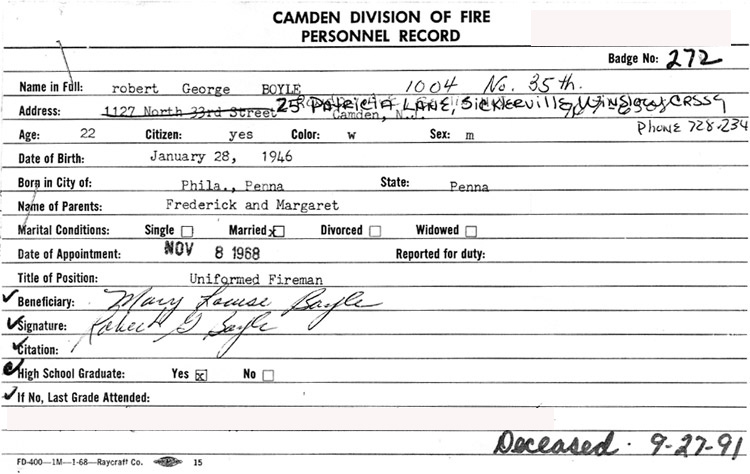 CAMDEN DIVISION OF FIRE
PERSONNEL RECORD
Badge No: 272
Name in Full: robert George BOYLE 1004 No. 35th.
Address: 1127 North 33rd Street 25 PATRICIA LANE, SICKLERVILLE, WINSLOW CRSSG
Camden, N.J.
Age: 22 Citizen: yes Color: w Sex: m Phone 728-234
Date of Birth: January 28, 1946
Born in City of: Phila., Penna State: Penna
Name of Parents: Frederick and Margaret
Marital Conditions: Single Married x Divorced Widowed
Date of Appointment: NOV 8 1968 Reported for duty:
Title of Position: Uniformed Fireman
Beneficiary: Mary Louise Boyle
Signature: Robert G Boyle
Citation:
High School Graduate: Yes x No
If No, Last Grade Attended:
Deceased · 9-27-91
FD-400—1M—1-68—Raycraft Co. 15